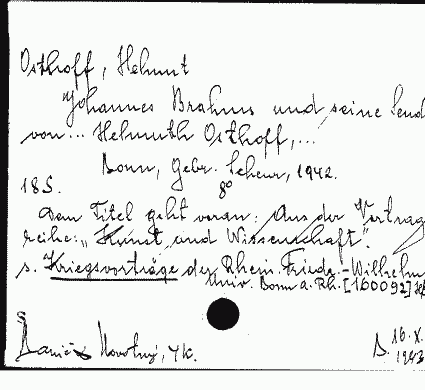 Osthoff, Helmut
Johannes Brahms und seine Send
von... Helmuth Osthoff,...
Bonn, Gebr. Scheur, 1942.
18 S. 8°
Dem Titel geht voran: Aus der Vortrags
reihe: „Kunst und Wissenschaft".
s. Kriegsvorträge der Rhein. Friedr.-Wilhelm
Univ. Bonn a. Rh. [160092]
S
Novotný, 4k.
D. 16. X.
1943